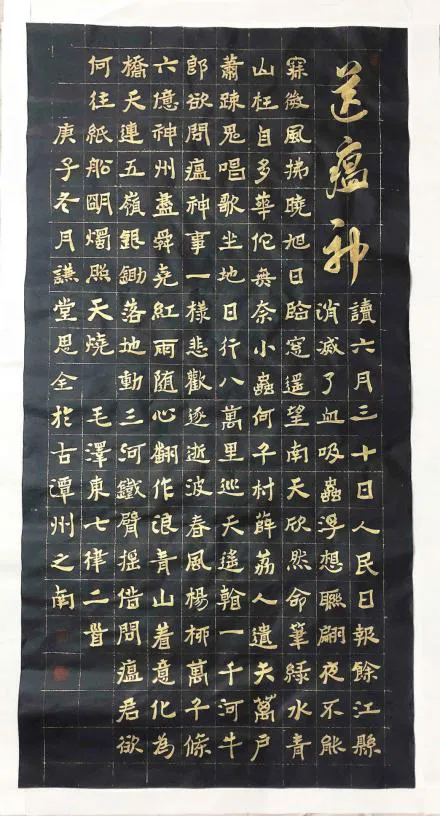 送瘟神
讀六月三十日人民日報餘江縣
消滅了血吸蟲浮想聯翩夜不能
寐微風拂曉旭日臨窗遥望南天欣然命筆綠水青
山枉自多華佗無奈小蟲何千村薜荔人遺矢萬戶
蕭疎鬼唱歌坐地日行八萬里巡天遙看一千河牛
郎欲問瘟神事一樣悲歡逐逝波春風楊柳萬千條
六億神州盡舜堯紅雨随心翻作浪青山着意化為
橋天連五嶺銀鋤落地動三河鐵臂摇借問瘟君欲
何往紙船明燭照天燒 毛澤東七律二首
庚子冬月謙堂思全於古潭州之南